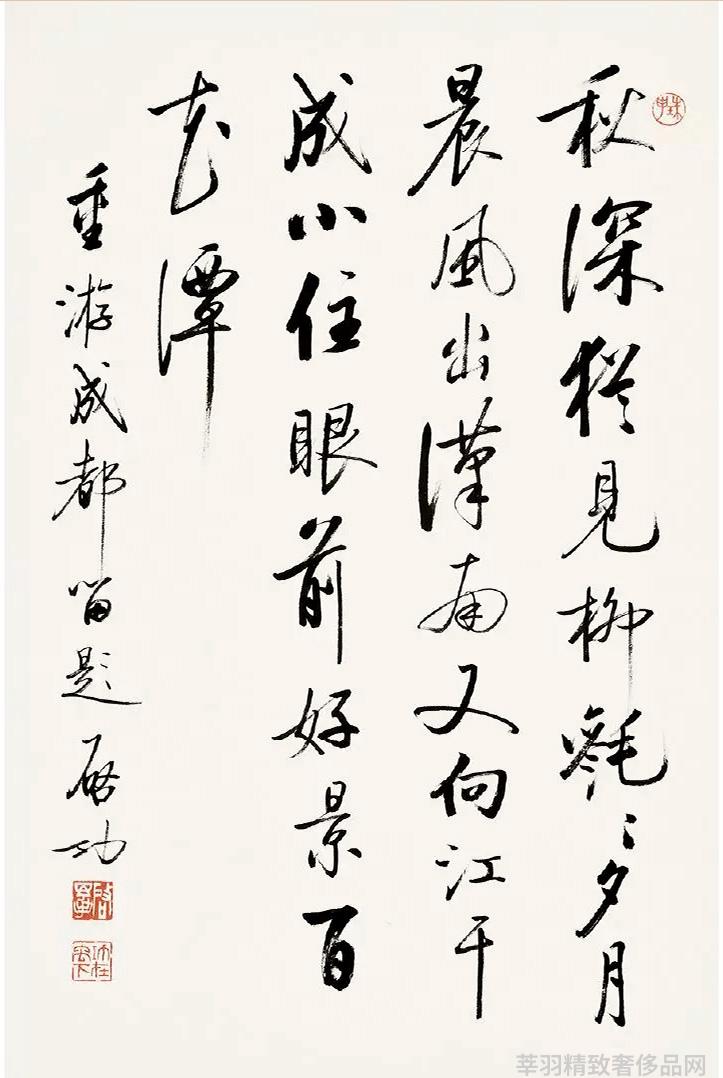 秋深猶見柳毿〻夕月
晨風出漢南又向江干
成小住眼前好景百
花潭
重游成都留題
啓功
莘羽精致奢侈品网